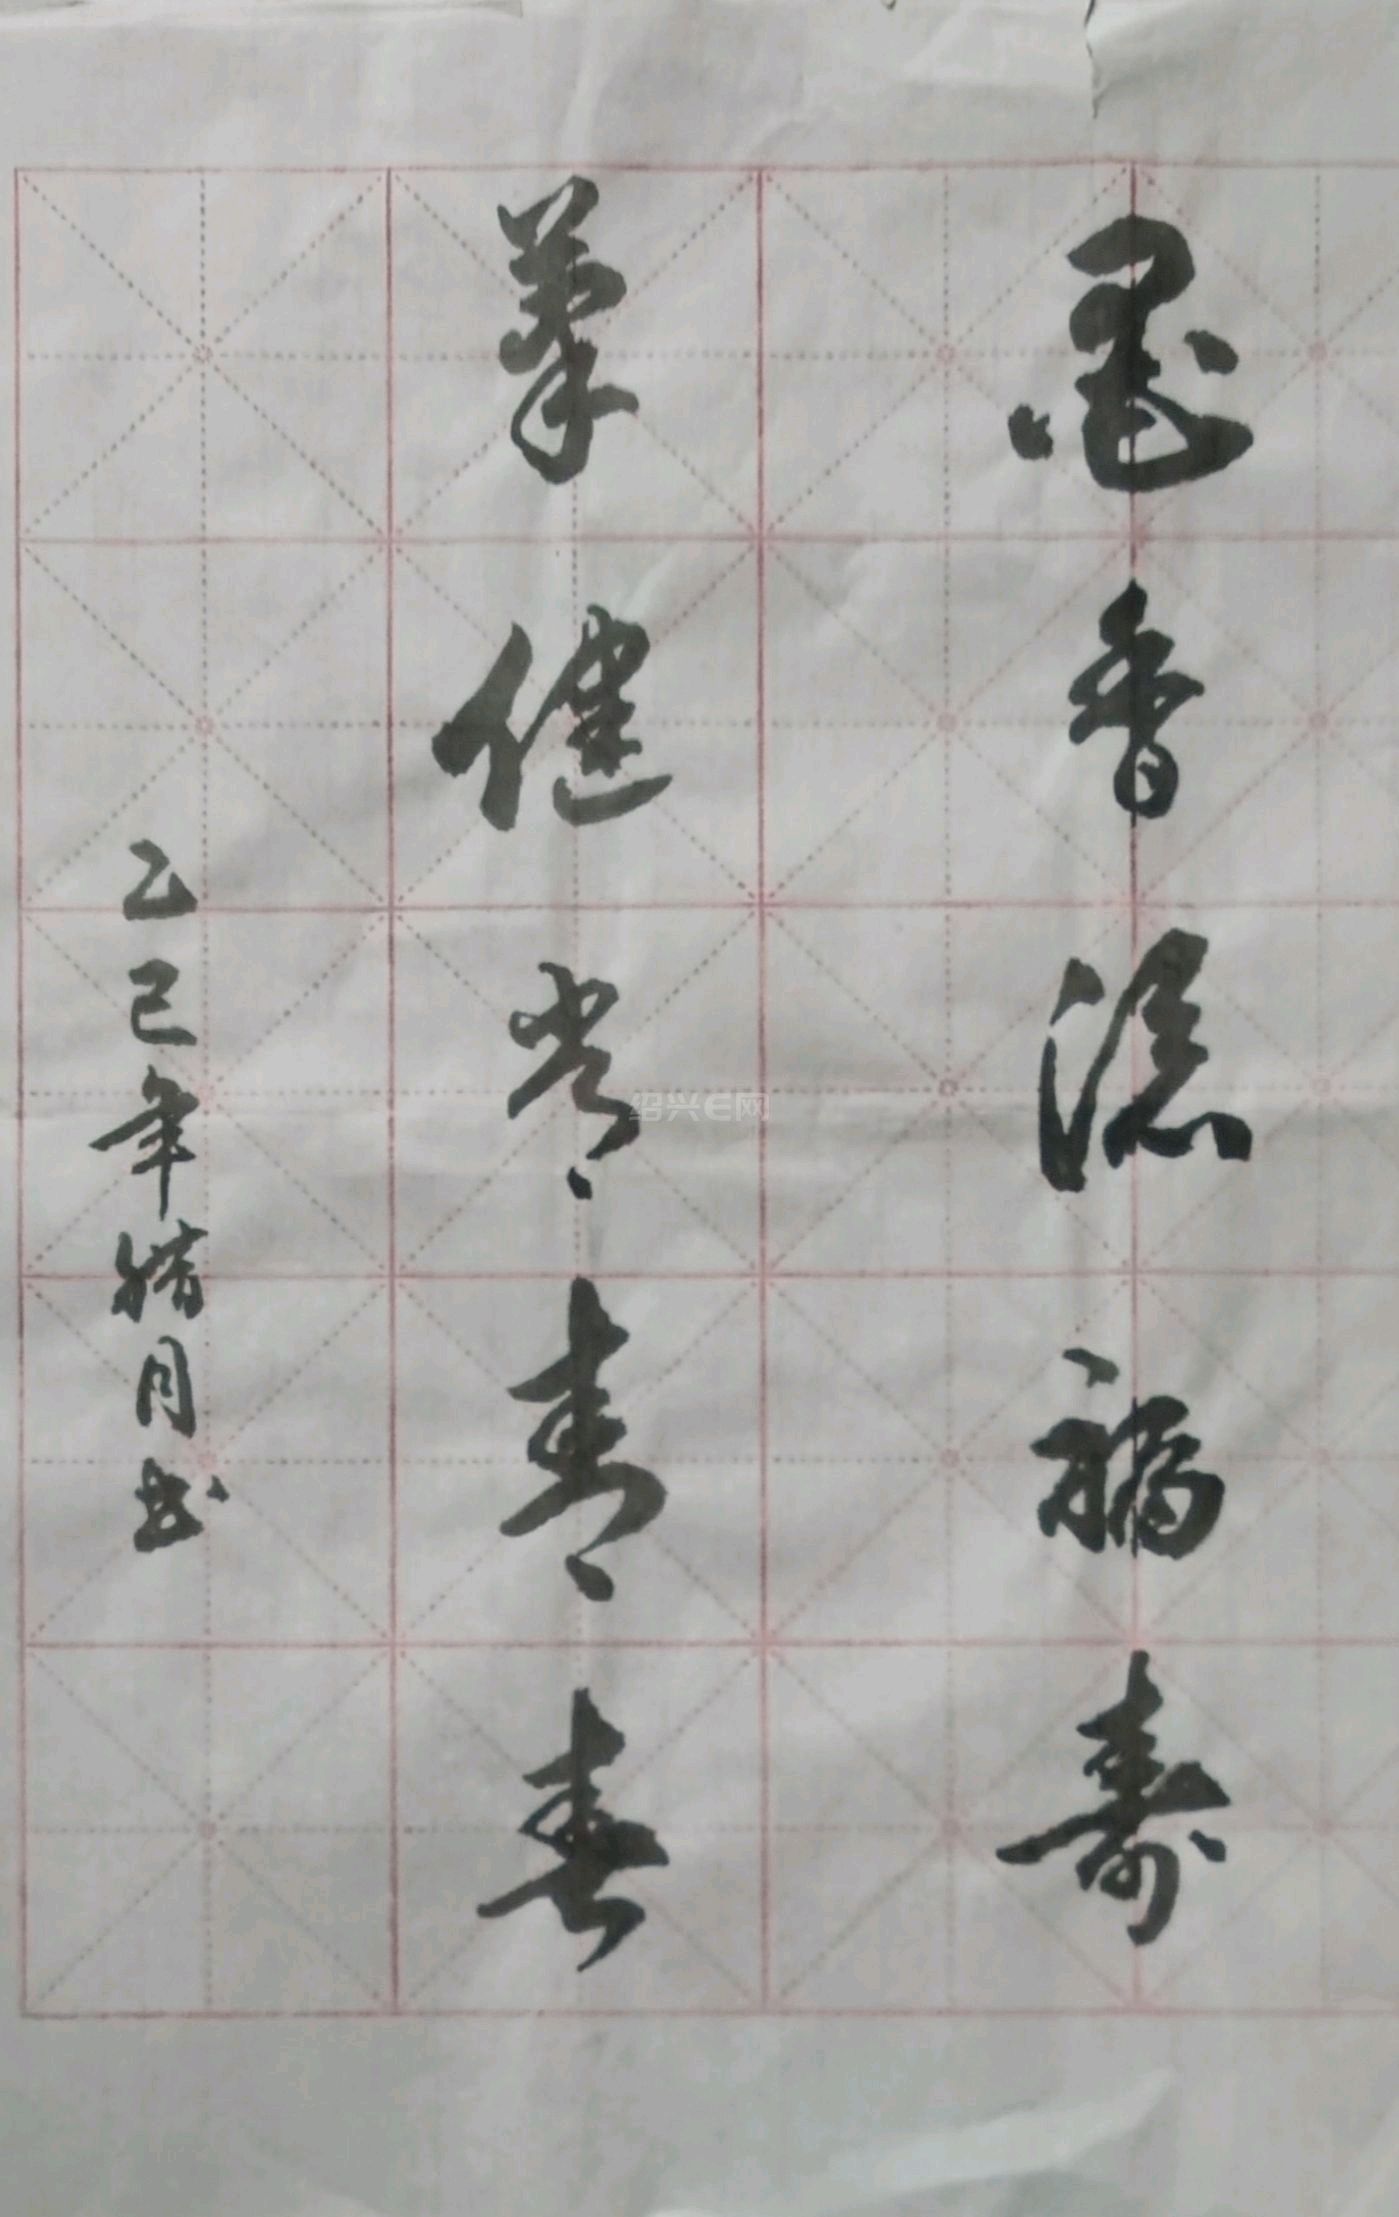 墨香添福寿
筆健常青春
乙巳年腊月书
绍兴E网